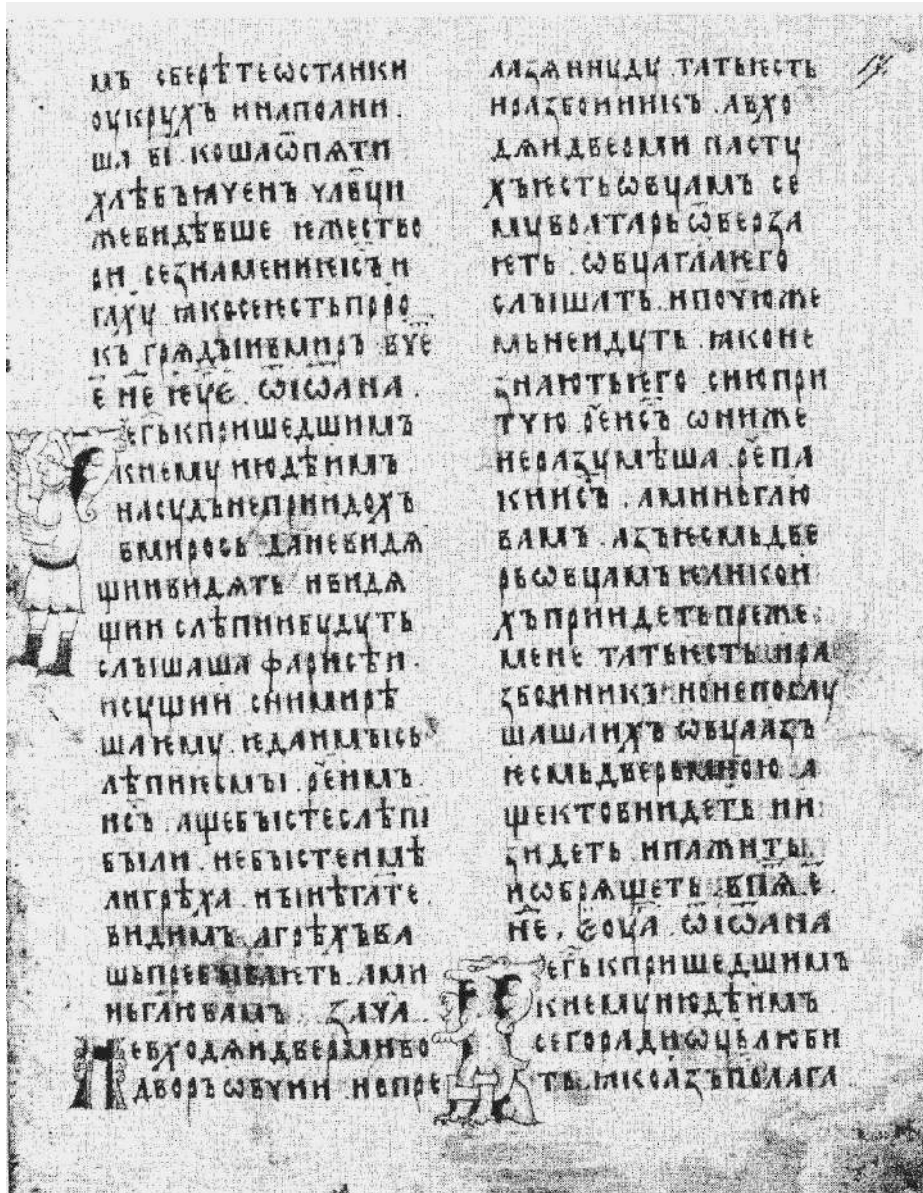 мъ сберѣтеѡстанки
оукрухъ инаполни
ша ві · кошаѿпѧти
хлѣбъꙗченъ члв҃ци
жевидѣвше ѥжество
ри сеꙁнамениѥіс҃ъ и
гл҃ху ꙗкосеѥстьпроро
къ грѧдыивмиръ
ѿіѡана ·
рег҃ькпришедшимъ
киѥму июдѣимъ
насудънепридохъ
вмирось данeвидѧ
щиивидѧть ивидѧ
щии слѣпиибудуть
слышаша фарисѣи ·
исущии снимирѣ
шаѥму · ѥдаимысь
лѣпиѥсмы рече҃имъ
ис҃ъ ащебыстеслѣпі
были · небыстеимѣ
лигрѣха нынѣгл҃те ·
видимъ агрѣхъва
шьпребываѥть · ами
ньгл҃ювамъ
невходѧидвермиво
дворъѡвчии нопре
лаꙁѧинуду татьѥсть
ираꙁбоиникъ · авхо
дѧидверми пасту
хъѥстьѡвцамъ се
мувратарьѿверꙁа
ѥть · ѡвцагласѥго
слышать · ипочюже
мьнеидуть ꙗконе
ꙁнаютьѥго сиюпри
тчю реч҃ис҃ъ ѡниже
нераꙁумѣша реч҃па
киис҃ъ · аминьгл҃ю
вамъ · аꙁъѥсмьдве
рьѡвцамъѥликои
хъпридетьпреже
мене татьѥсть ира
ꙁбоиникъ нонепослу
шашаихъ ѡвцааꙁъ
ѥсмьдверьмною а
щектовнидеть ии
ꙁидеть ипажить
иѡбрѧщеть
ѿіѡана
рег҃ькпришедшимъ
киѥмуиюдѣимъ
сегорадиѡц҃ьлюби
ть ꙗкоаꙁъполага